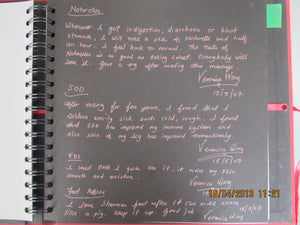 Naturelles
Whenever I got indigestion, diarrhoea or bloat
stomach, I will take a pkts of Naturelle and half
an hour. I feel back to normal. The taste of
Naturelles is so good as taking sweet. Everybody will
love it. Give a try after reading this message
Veronica Wong
13/5/07
SOD
After taking for few years, I found that I
seldom easily sick with cold, cough. I found
that SOD has improved my immune system and
also skin of my leg has improved tremendously.
Veronica Wong
15/5/07
EDI
I used EDI I quite like it, it make my skin
smooth and moisture.
Veronica Wong
Foot Reflex
15/5/07
I love Sharman foot reflex it can make snore
like a pig. Keep it up. Good job
Veronica Wong
19/04/2013 11:21